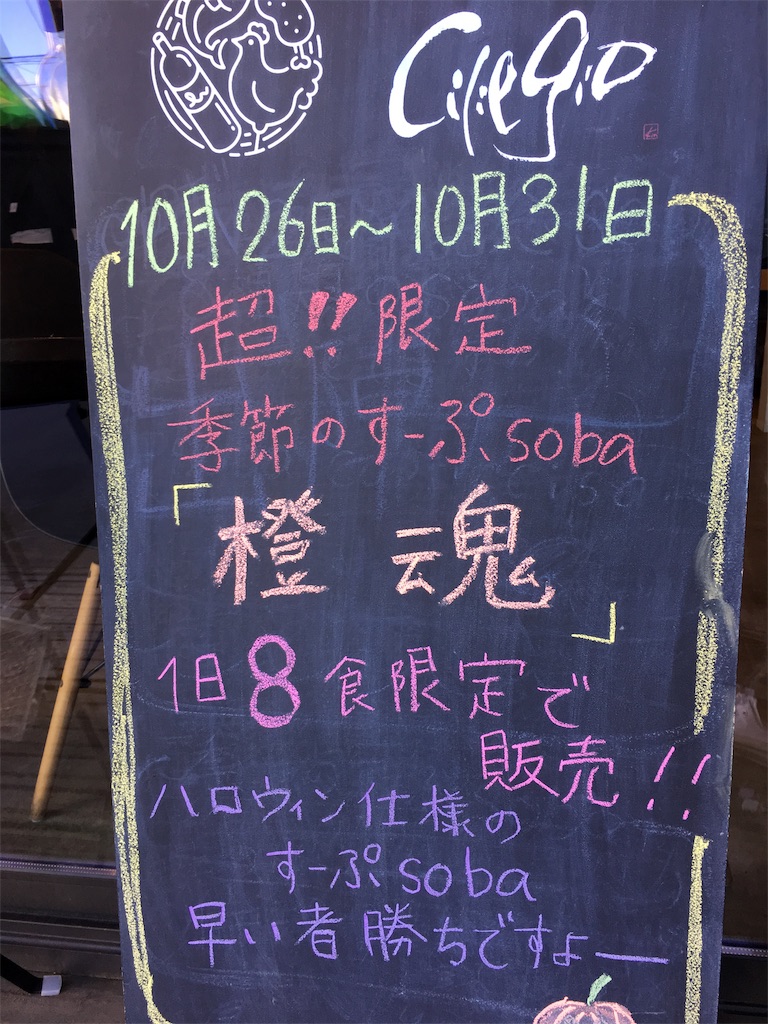 Ciliegio
10月26日〜10月31日
超!!限定
季節のすーぷsoba
「橙 魂」
1日8食限定で
販売!!
ハロウィン仕様の
すーぷsoba
早い者勝ちですよー